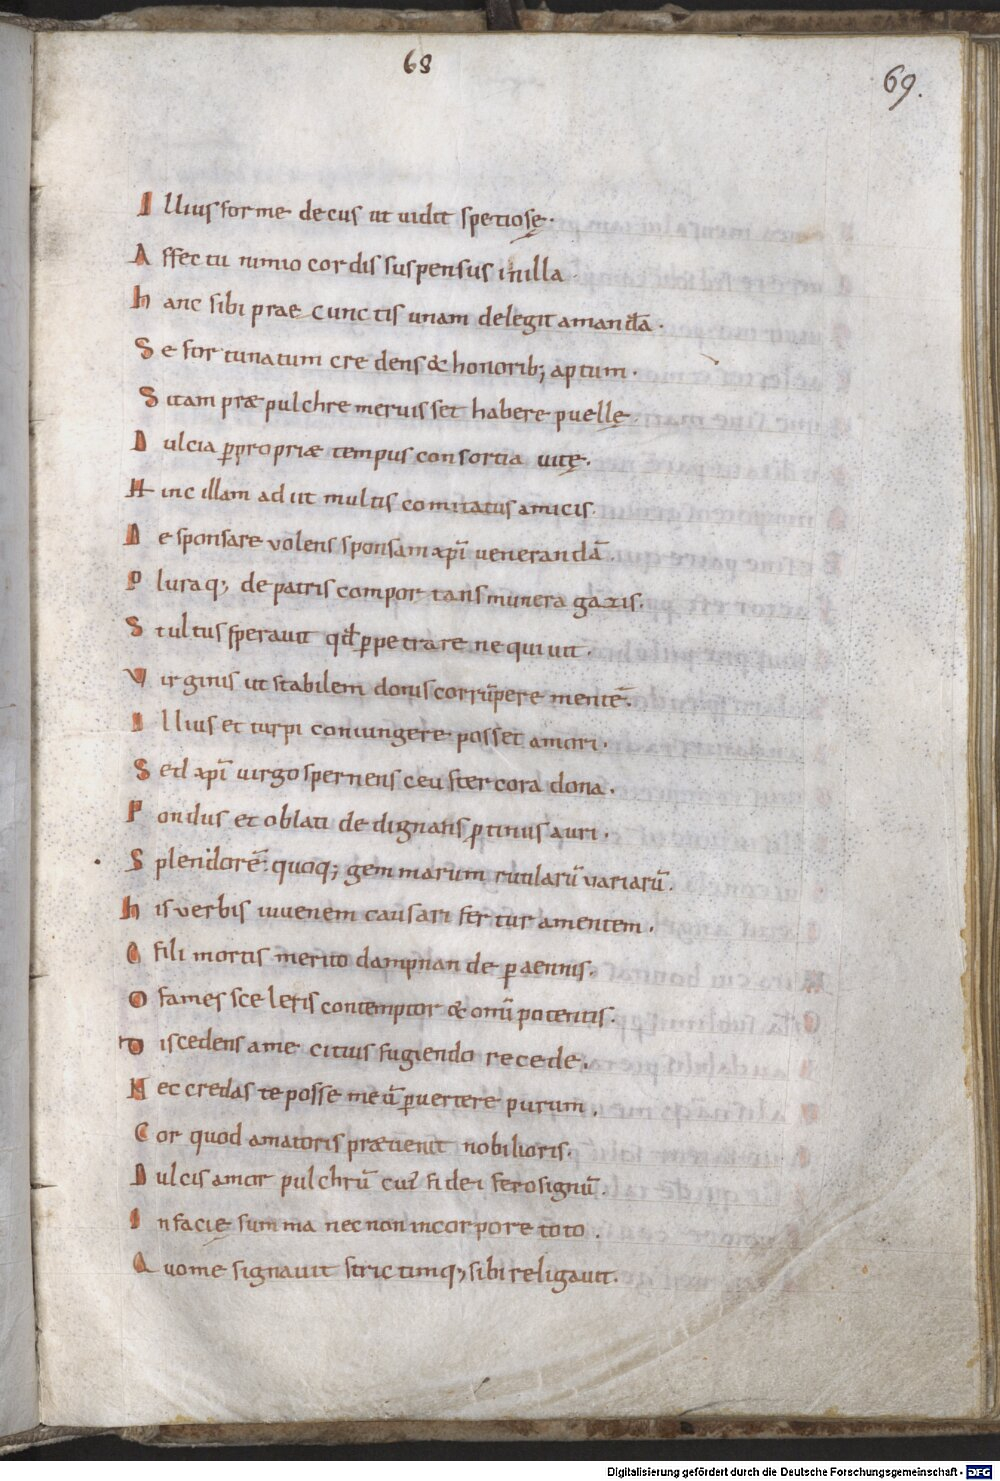 68
69.
Illius forme decus ut uidit spetiosę.
Affectu nimio cordis suspensus inilla.
hanc sibi prae cunctis unam delegit amandā.
Se fortunatum credens & honorib; aptum.
Sitam præ pulchre meruisset habere puellę.
Dulcia ꝓpropriæ tempus consortia uitę.
Hinc illam adiit multis comitatus amicis.
Desponsare volens sponsam xp̄i uenerandā.
Pluraq; de patris comportans munera gazis.
Stultus sperauit qđ ꝑpetrare nequiuit.
Virginis ut stabilem donis corrūpere mentē.
Illius et turpi coniungere posset amori.
Sed xp̄i uirgo spernens ceu stercora dona.
Pondus et oblati dedignans ꝓtinus auri.
Splendorē quoq; gemmarum rutilarū uariarū.
his verbis iuuenem causari fertur amentem.
O fili mortis merito dampnande ꝑaennis.
O fames sceleris contemptor & om̄ipotentis.
Discedens ame citius fugiendo recede.
Nec credas te posse meū ꝑuertere purum.
Cor quod amatoris præuenit nobilioris.
Dulcis amor pulchrū cui' fidei fero signū.
In facię summa necnon incorpore toto.
Quo me signauit strictimq; sibi religauit.
Digitalisierung gefördert durch die Deutsche Forschungsgemeinschaft - DFG